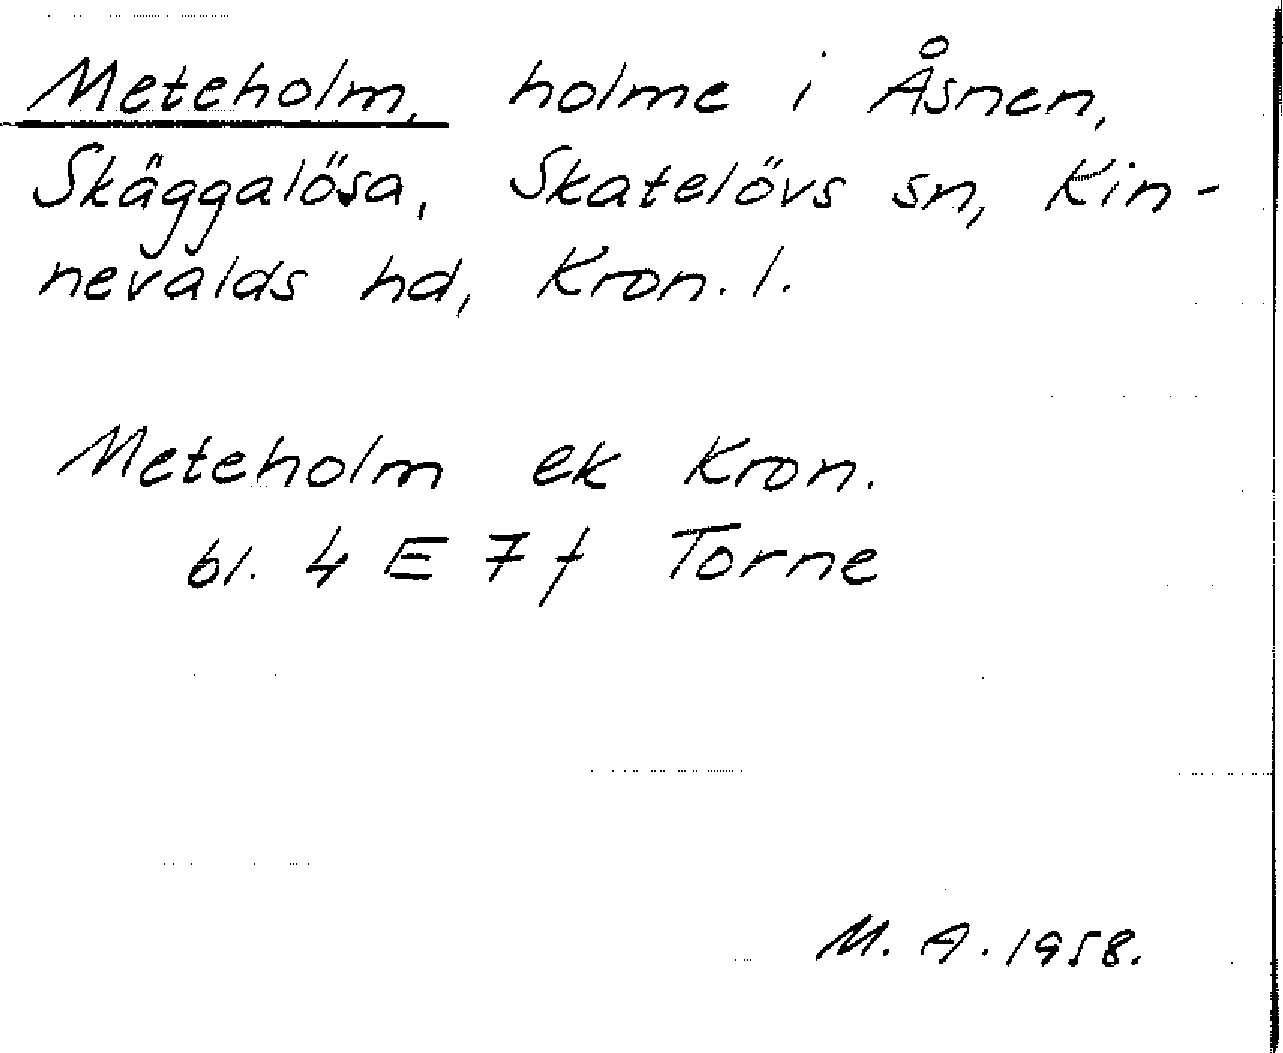 Meteholm, holme i Åsnen,
Skäggalösa, Skatelövs sn, Kin-
nevalds hd, Kron. l.
Meteholm ek Kron.
bl. 4 E 7 f Torne
M. A. 1958.